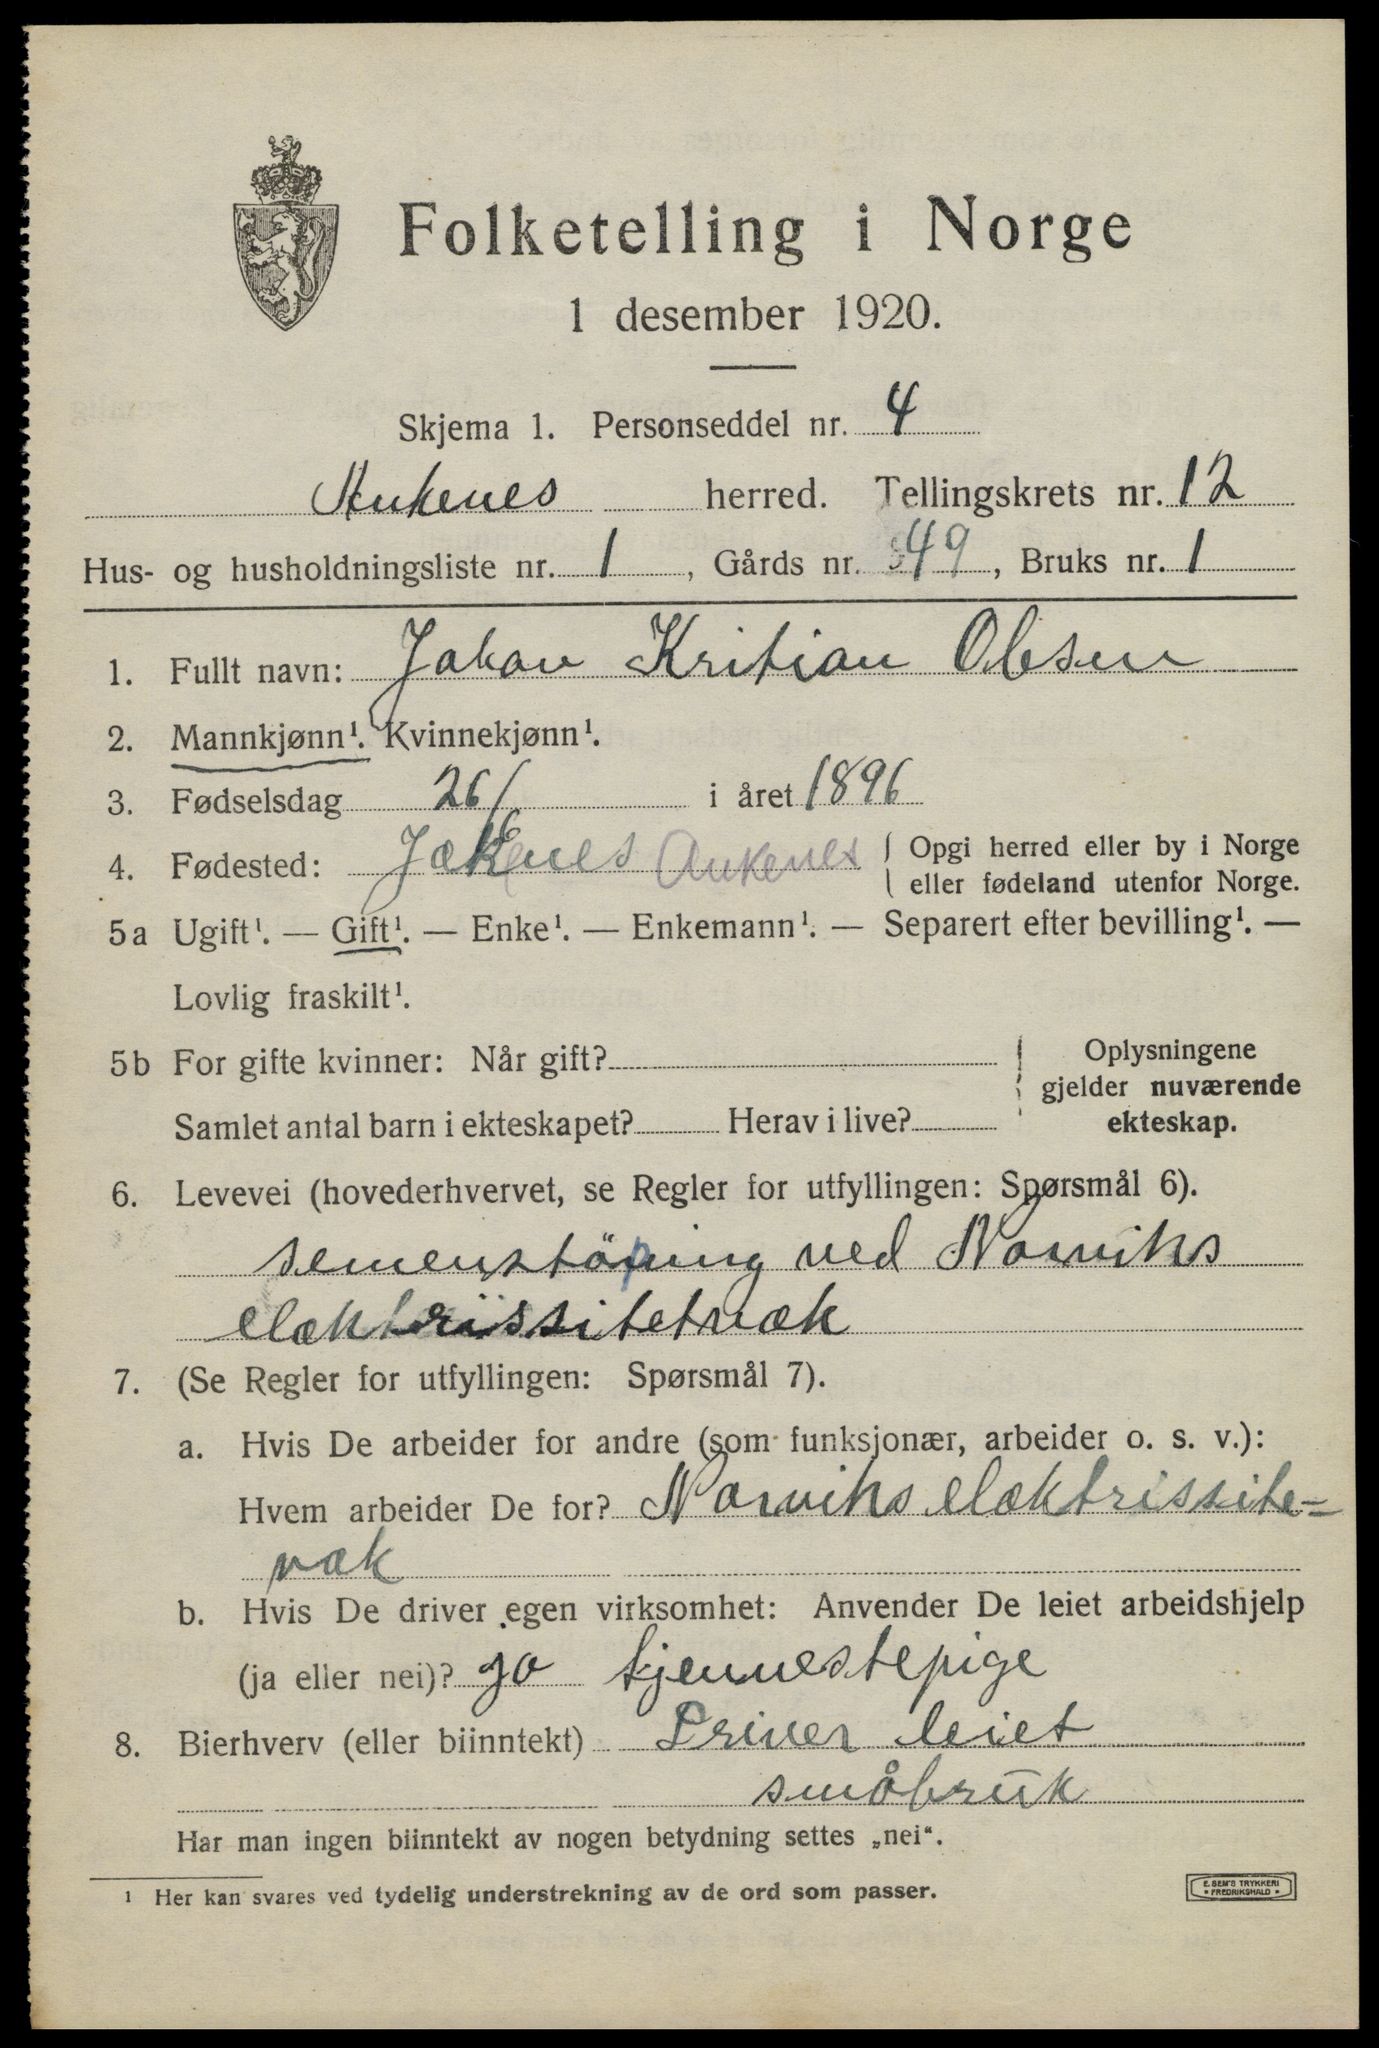 Folketelling i Norge
1 desember 1920.
Skjema 1. Personseddel nr. 4
Ankenes herred. Tellingskrets nr. 12
Hus- og husholdningsliste nr. 1, Gårds nr. 49, Bruks nr. 1
1. Fullt navn: Johan Kritian Olsen
2. Mannkjønn¹. Kvinnekjønn¹.
3. Fødselsdag 26/ i året 1896
4. Fødested: Ankenes { Opgi herred eller by i Norge
eller fødeland utenfor Norge.
5a Ugift¹. — Gift¹. — Enke¹. — Enkemann¹. — Separert efter bevilling¹. —
Lovlig fraskilt¹.
5b For gifte kvinner: Når gift? { Oplysningene
gjelder nuværende
Samlet antal barn i ekteskapet? Herav i live? ekteskap.
6. Levevei (hovederhvervet, se Regler for utfyllingen: Spørsmål 6).
semenstöping ved Narviks
elæktrissitetvæk
7. (Se Regler for utfyllingen: Spørsmål 7).
a. Hvis De arbeider for andre (som funksjonær, arbeider o. s. v.):
Hvem arbeider De for? Narviks elæktrissite=
væk
b. Hvis De driver egen virksomhet: Anvender De leiet arbeidshjelp
(ja eller nei)? ja tjennestepige
8. Bierhverv (eller biinntekt) Driver leiet
småbruk
Har man ingen biinntekt av nogen betydning settes „nei“.
¹ Her kan svares ved tydelig understrekning av de ord som passer.
E. SEM'S TRYKKERI
• FREDRIKSHALD •